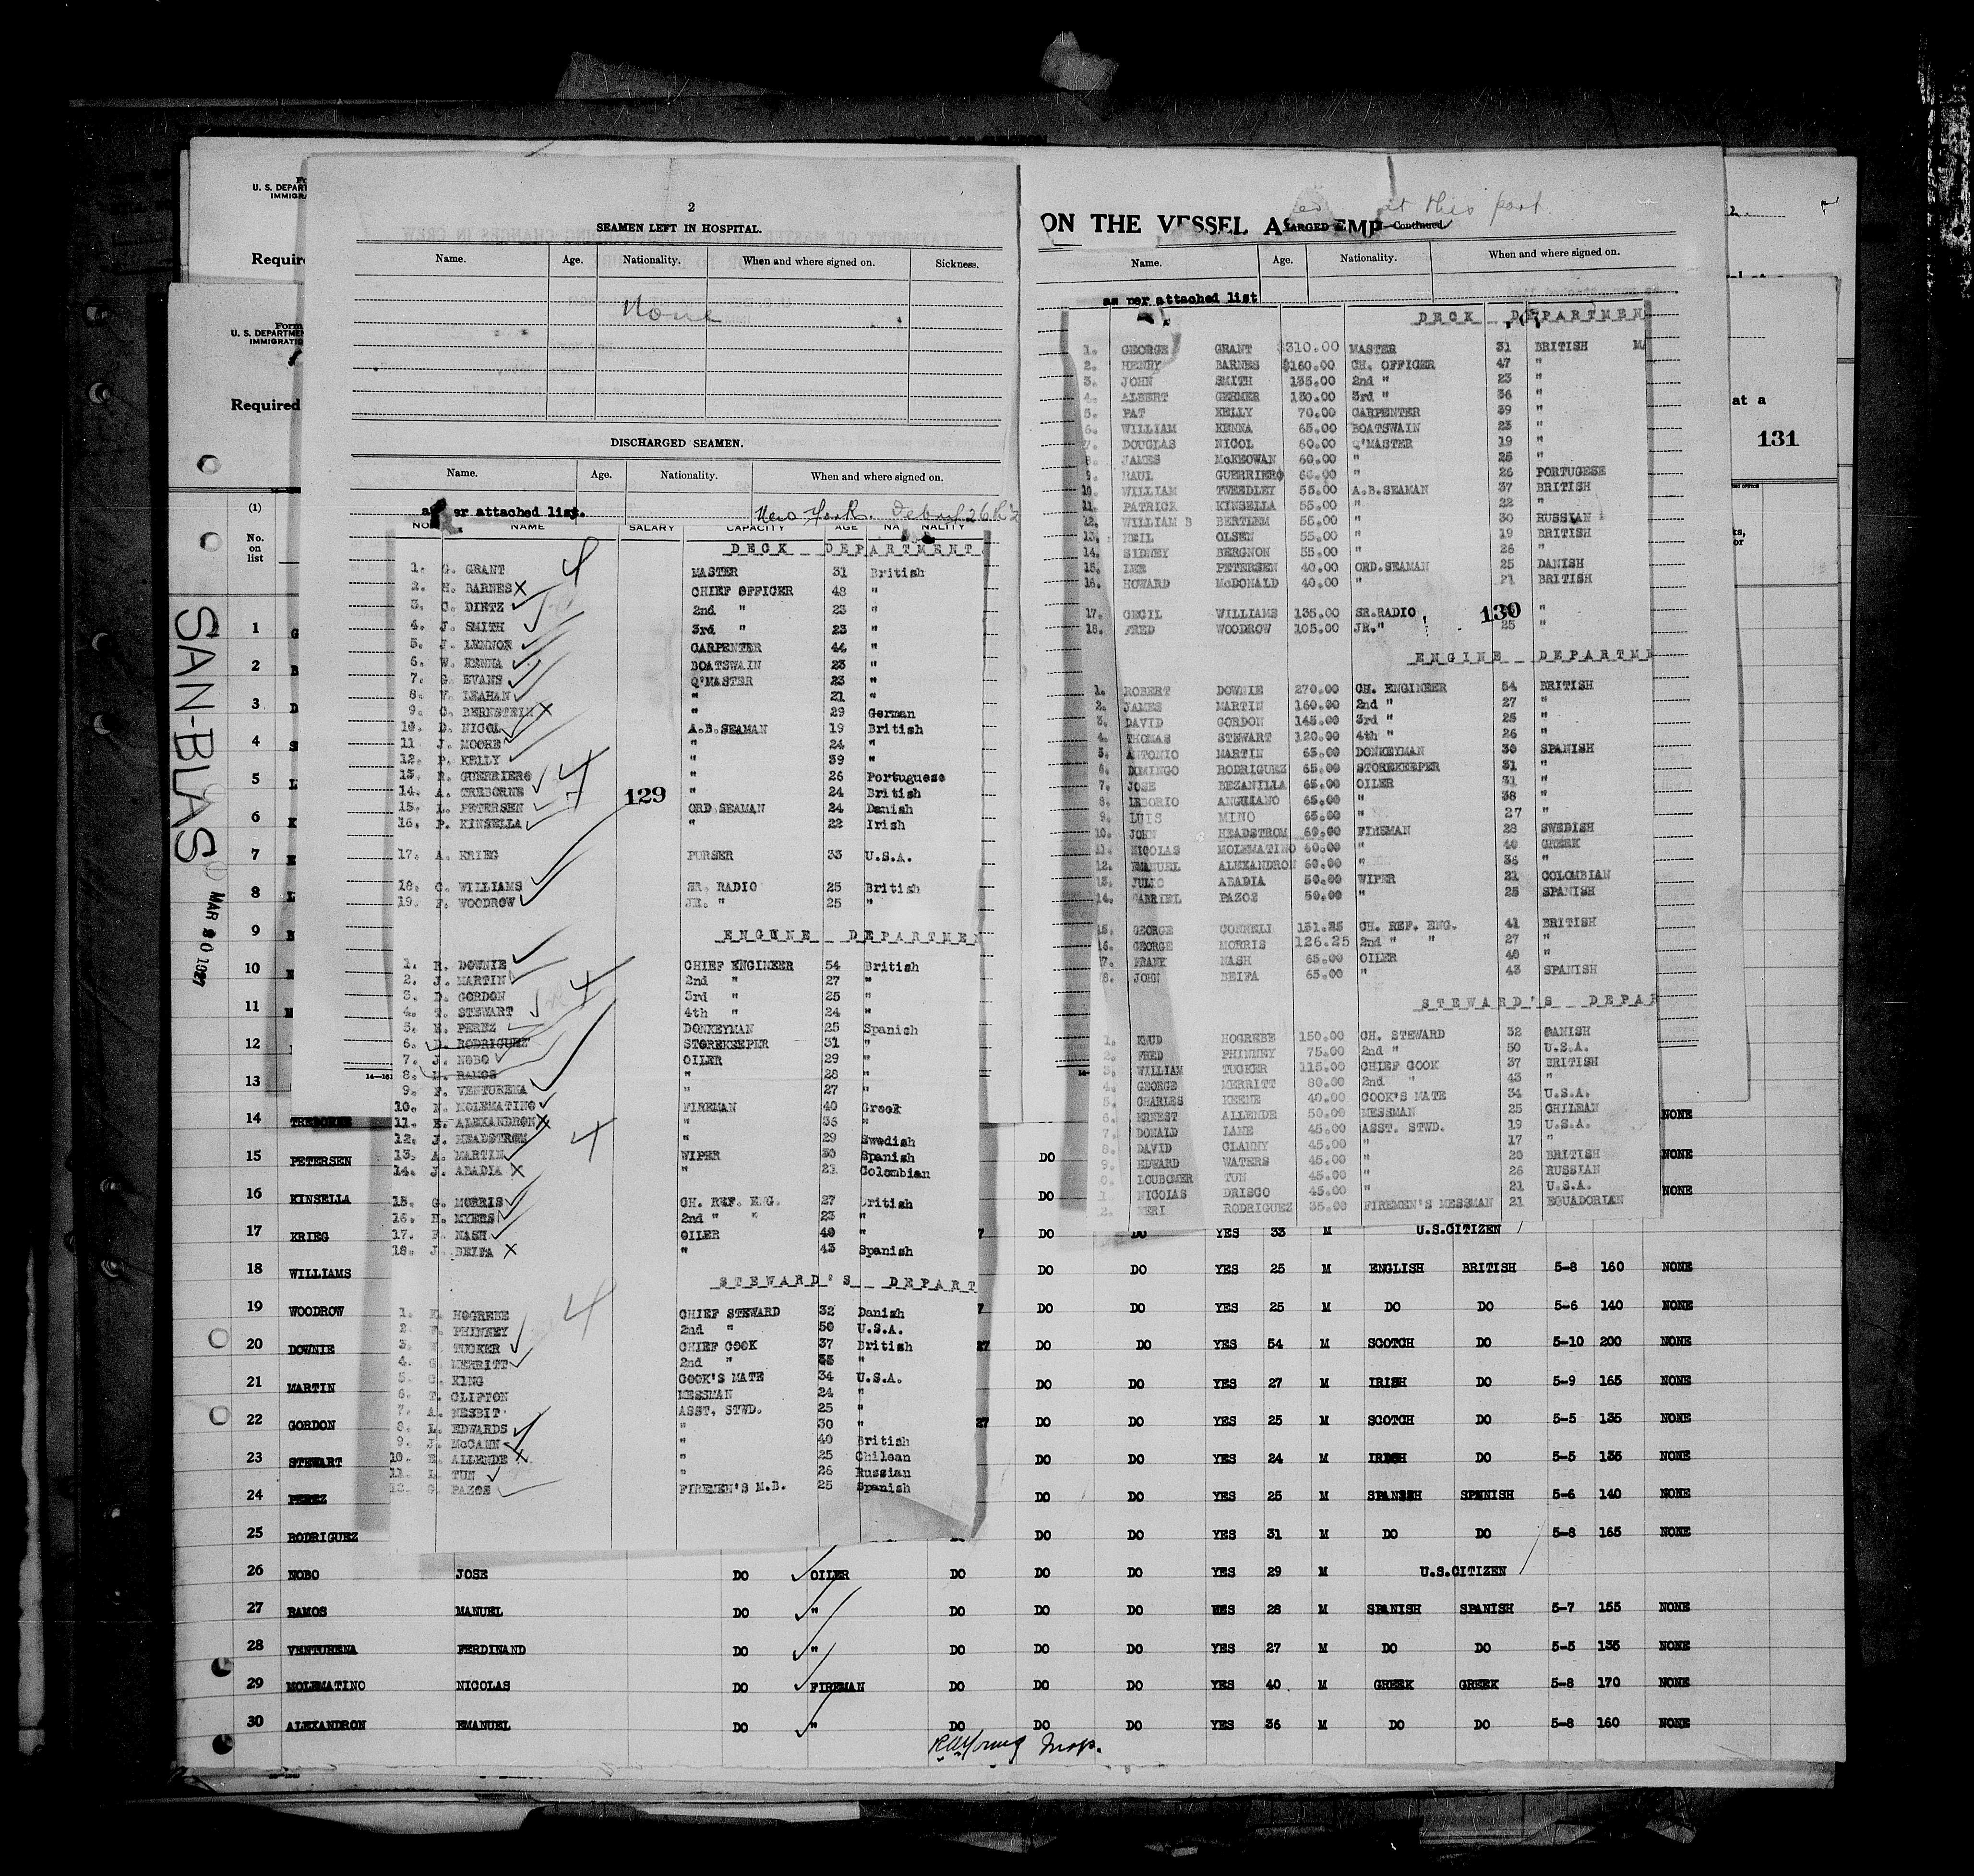 2
SEAMEN LEFT IN HOSPITAL.
Name. Age. Nationality. When and where signed on. Sickness.
None
DISCHARGED SEAMEN.
Name. Age. Nationality. When and where signed on.
er attached list. New York.
NAME SALARY CAPACITY AGE NALITY
DECK DEPARTMENT
1. G. GRANT MASTER 31 British
2. H. BARNES X CHIEF OFFICER 48 "
3. C. DIETZ 2nd " 23 "
4. J. SMITH 3rd " 23 "
5. J. LENNOX CARPENTER 44 "
6. W. KENNA BOATSWAIN 23 "
7. G. EVANS Q'MASTER 23 "
8. V. LEAHAN " 21 "
9. C. BERNSTEIN X " 29 German
10. D. NICOL A.B.SEAMAN 19 British
11. J. MOORE " 24 "
12. P. KELLY " 39 "
13. R. GUERRIERO " 26 Portuguese
14. A. TREBORNE " 24 British
15. L. PETERSEN ORD.SEAMAN 24 Danish
16. P. KINSELLA " 22 Irish
129
17. A. KRIEG PURSER 33 U.S.A.
18. C. WILLIAMS SR. RADIO 25 British
19. F. WOODROW JR. " 25 "
ENGUNE DEPARTMEN
1. R. DOWNIE CHIEF ENGINEER 54 British
2. J. MARTIN 2nd " 27 "
3. D. GORDON 3rd " 25 "
4. T. STEWART 4th " 24 "
5. E. PEREZ DONKEYMAN 25 Spanish
6. D. RODRIGUEZ STOREKEEPER 31 "
7. J. NOBO OILER 29 "
8. M. RAMOS " 28 "
9. F. VENTURENA " 27 "
10. N. MOLEMATINO FIREMAN 40 Greek
11. E. ALEXANDRON X " 36 "
12. J. HEADSTROM " 29 Swedish
13. A. MARTIN WIPER 30 Spanish
14. J. ABADIA X " 21 Colombian
15. G. MORRIS CH. REF. ENG. 27 British
16. H. MYERS 2nd " " 23 "
17. F. NASH OILER 40 "
18. J. BEIFA X " 43 Spanish
STEWARD'S DEPART
1. K. HOGREBE CHIEF STEWARD 32 Danish
2. F. PHINNEY 2nd " 50 U.S.A.
3. W. TUCKER CHIEF COOK 37 British
4. G. MERRITT 2nd " "
5. C. KING COOK'S MATE 34 U.S.A.
6. T. CLIFTON MESSMAN 24 "
7. A. NESBIT ASST. STWD. 25 "
8. L. EDWARDS " 30 "
9. J. McCANN " 40 British
10. E. ALLENDE X " 25 Chilean
11. L. TUN " 26 Russian
12. G. PAZOS FIREMEN'S M.B. 25 Spanish
at this port
ON THE VESSEL AS EMP
ARGED Continued
Name. Age. Nationality. When and where signed on.
as per attached list
DECK DEPARTMEN
1. GEORGE GRANT $310.00 MASTER 31 BRITISH MA
2. HENRY BARNES $160.00 CH. OFFICER 47 "
3. JOHN SMITH 135.00 2nd " 23 "
4. ALBERT GERMER 130.00 3rd " 36 "
5. PAT KELLY 70.00 CARPENTER 39 "
6. WILLIAM KENNA 65.00 BOATSWAIN 23 "
7. DOUGLAS NICOL 60.00 Q'MASTER 19 "
8. JAMES McKEOWAN 60.00 " 25 "
9. RAUL GUERRIERO 60.00 " 26 PORTUGESE
10. WILLIAM TWEEDLEY 55.00 A.B.SEAMAN 37 BRITISH
11. PATRICK KINSELLA 55.00 " 22 "
12. WILLIAM B BERTLEM 55.00 " 30 RUSSIAN
13. NEIL OLSEN 55.00 " 19 BRITISH
14. SIDNEY BERGNON 55.00 " 26 "
15. LEE PETERSEN 40.00 ORD.SEAMAN 25 DANISH
16. HOWARD McDONALD 40.00 " 21 BRITISH
17. CECIL WILLIAMS 135.00 SR.RADIO "
130
18. FRED WOODROW 105.00 JR." 25 "
ENGINE DEPARTME
1. ROBERT DOWNIE 270.00 CH. ENGINEER 54 BRITISH
2. JAMES MARTIN 160.00 2nd " 27 "
3. DAVID GORDON 145.00 3rd " 25 "
4. THOMAS STEWART 120.00 4th " 26 "
5. ANTONIO MARTIN 65.00 DONKEYMAN 30 SPANISH
6. DOMINGO RODRIGUEZ 65.00 STOREKEEPER 31 "
7. JOSE BEZANILLA 65.00 OILER 31 "
8. LEBORIO ANGUIANO 65.00 " 38 "
9. LUIS MINO 65.00 " 27 "
10. JOHN HEADSTROM 60.00 FIREMAN 28 SWEDISH
11. NICOLAS MOLEMATINO 60.00 " 40 GREEK
12. EMANUEL ALEXANDRON 60.00 " 36 "
13. JULIO ABADIA 50.00 WIPER 21 COLOMBIAN
14. GABRIEL PAZOS 50.00 " 25 SPANISH
15. GEORGE CONNELI 151.25 CH. REF. ENG. 41 BRITISH
16. GEORGE MORRIS 126.25 2nd " " 27 "
17. FRANK NASH 65.00 OILER 40 "
18. JOHN BEIFA 65.00 " 43 SPANISH
STEWARD'S DEPAR
1. KNUD HOGREBE 150.00 CH. STEWARD 32 DANISH
2. FRED PHINNEY 75.00 2nd " 50 U.S.A.
3. WILLIAM TUCKER 115.00 CHIEF COOK 37 BRITISH
4. GEORGE MERRITT 80.00 2nd " 43 "
5. CHARLES KEENE 40.00 COOK'S MATE 34 U.S.A.
6. ERNEST ALLENDE 50.00 MESSMAN 25 CHILEAN
7. DONALD LANE 45.00 ASST. STWD. 19 U.S.A.
8. DAVID CLANNY 45.00 " 17 "
9. EDWARD WATERS 45.00 " 20 BRITISH
0. LOUBOMER TUN 45.00 " 26 RUSSIAN
1. NICOLAS DRISCO 45.00 " 21 U.S.A.
2. NERI RODRIGUEZ 35.00 FIREMEN'S MESSMAN 21 EQUADORIAN
U. S. DEPART
IMMIGRA
Require
Form
U. S. DEPARTME
IMMIGRATIO
Required
at a
131
(1)
No.
on
list
SAN-BLAS
MAR 20 1927
1 G
2 B
3 D
4 S
5 L
6 K
7 E
8 L
9 B
10 N
11 M
12
13
14 TREBORNE NONE
15 PETERSEN DO NONE
16 KINSELLA DO NONE
17 KRIEG 7 DO DO YES 33 M U.S.CITIZEN
18 WILLIAMS DO DO YES 25 M ENGLISH BRITISH 5-8 160 NONE
19 WOODROW 7 DO DO YES 25 M DO DO 5-6 140 NONE
20 DOWNIE 27 DO DO YES 54 M SCOTCH DO 5-10 200 NONE
21 MARTIN DO DO YES 27 M IRISH DO 5-9 165 NONE
22 GORDON 27 DO DO YES 25 M SCOTCH DO 5-5 135 NONE
23 STEWART DO DO YES 24 M IRISH DO 5-5 135 NONE
24 PEREZ DO DO YES 25 M SPANISH SPANISH 5-6 140 NONE
25 RODRIGUEZ DO DO YES 31 M DO DO 5-8 165 NONE
26 NOBO JOSE DO OILER DO DO DO YES 29 M U.S.CITIZEN
27 RAMOS MANUEL DO " DO DO DO YES 28 M SPANISH SPANISH 5-7 155 NONE
28 VENTURENA FERDINAND DO " DO DO DO YES 27 M DO DO 5-5 135 NONE
29 MOLEMATINO NICOLAS DO FIREMAN DO DO DO YES 40 M GREEK GREEK 5-8 170 NONE
30 ALEXANDRON EMANUEL DO " DO DO DO YES 36 M DO DO 5-8 160 NONE